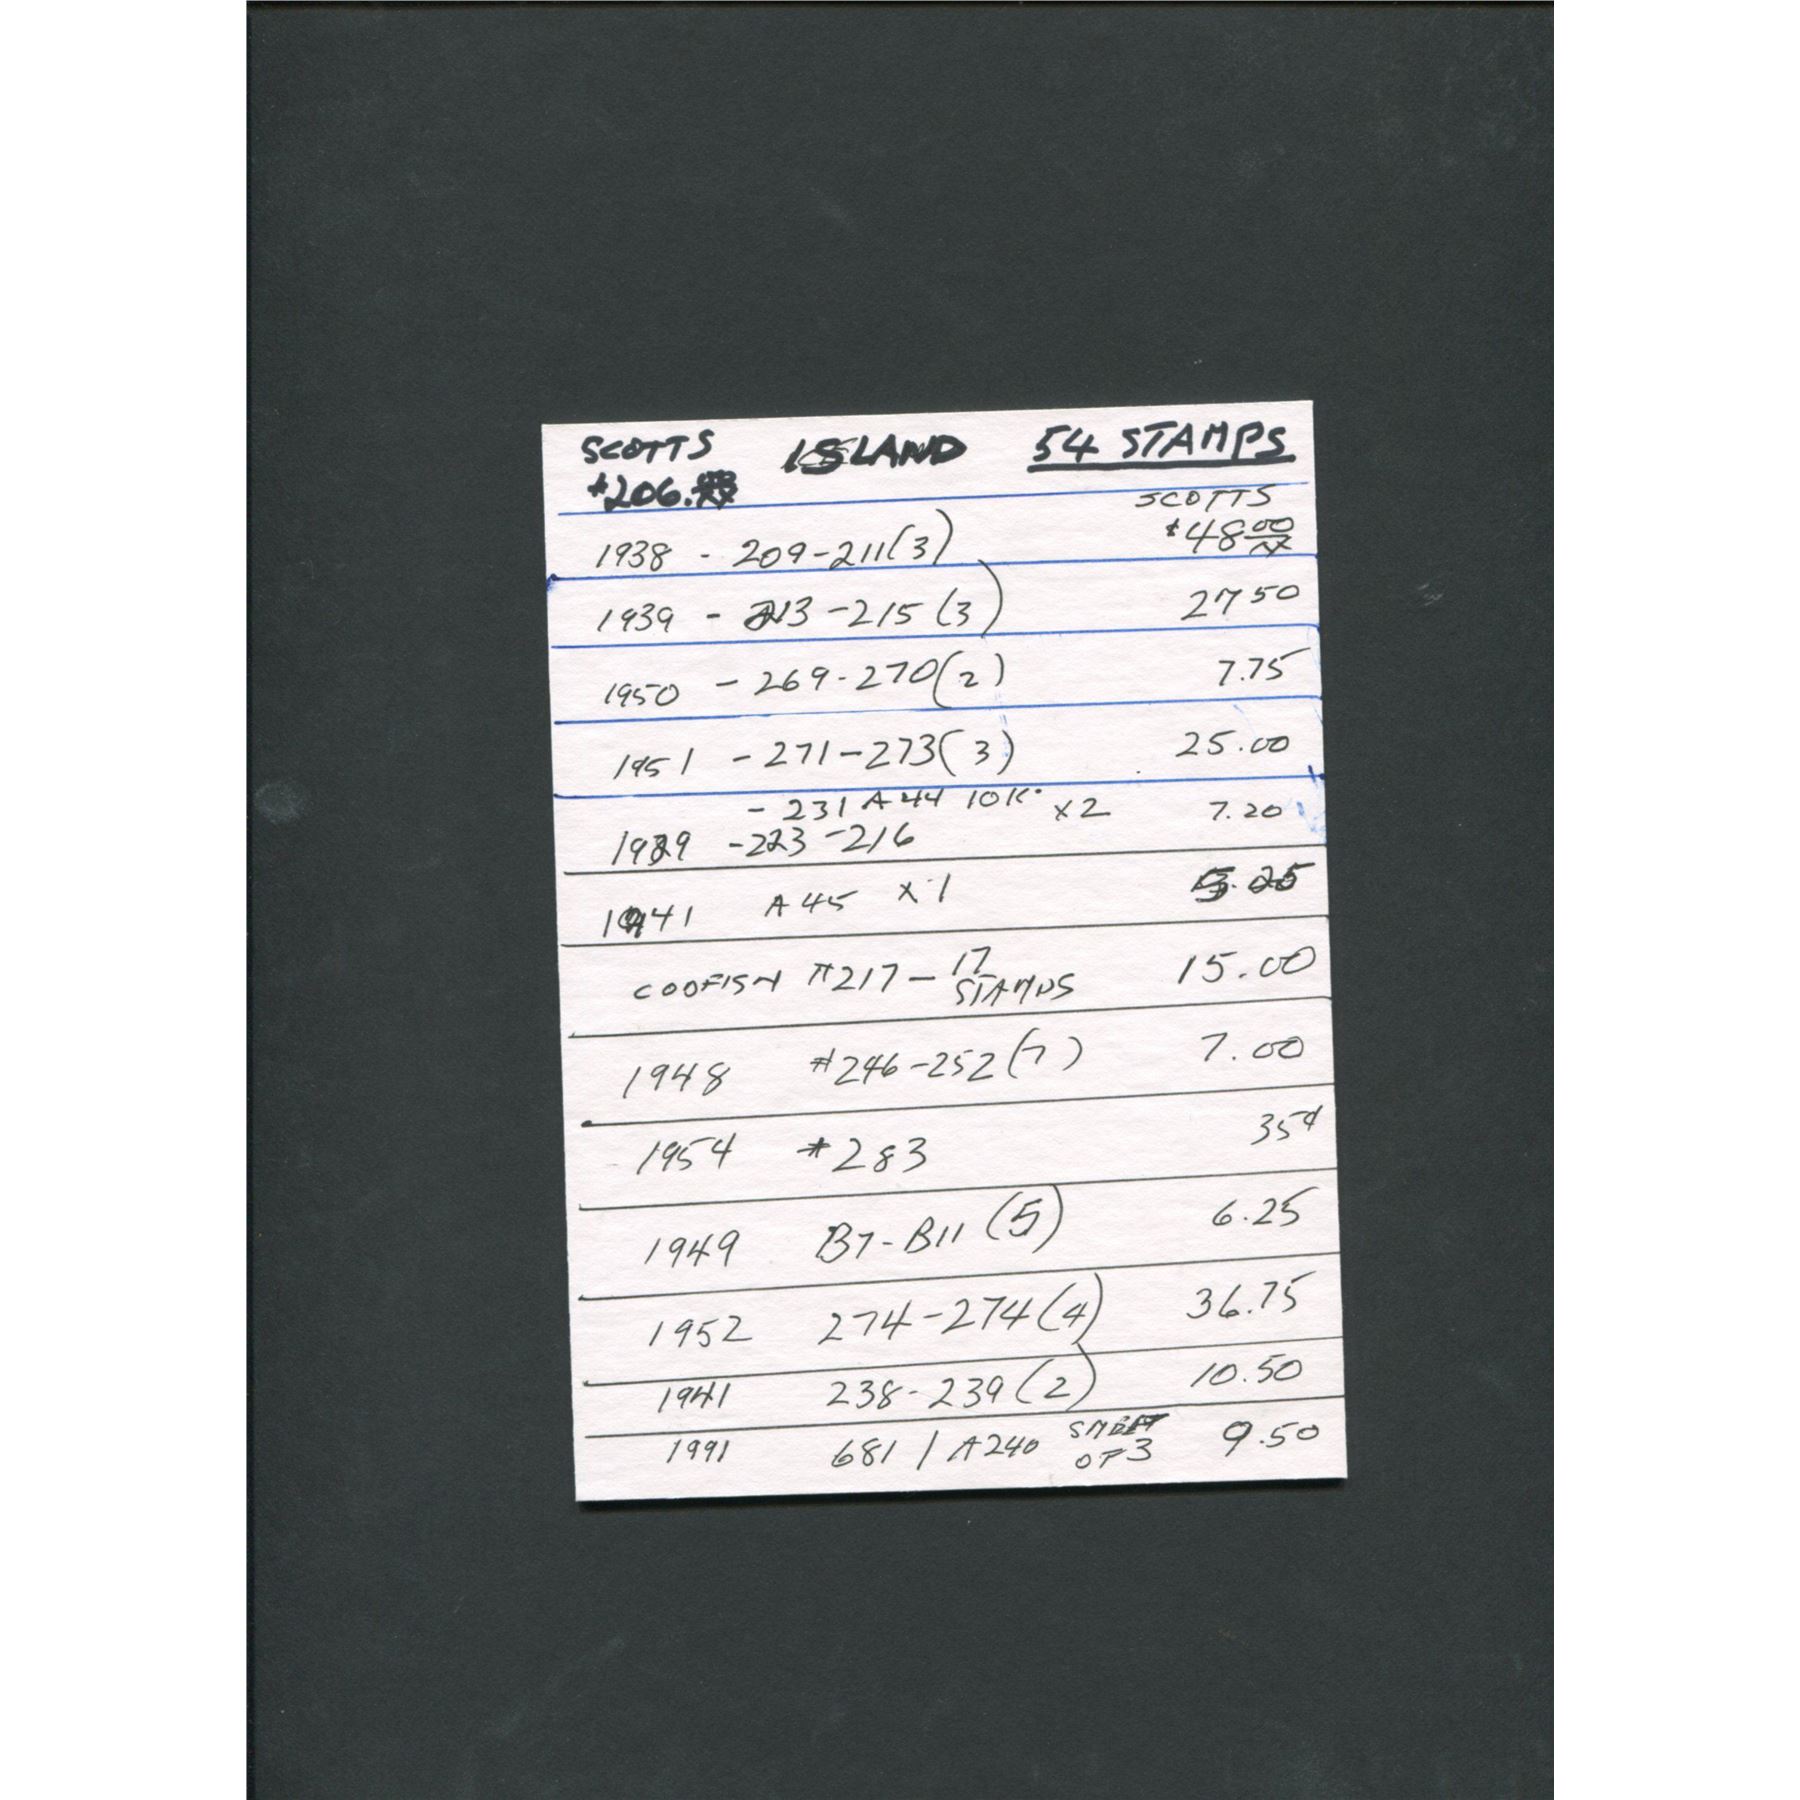 SCOTTS ISLAND 54 STAMPS
$206.
SCOTTS
1938 - 209-211(3) $48 00
1939 - 213-215 (3) 27 50
1950 - 269-270(2) 7.75
1951 - 271-273(3) 25.00
- 231 A44 10K. x2 7.20
1939 - 223-216
1941 A45 x1 5.25
CODFISH #217- 17 STAMPS 15.00
1948 #246-252(7) 7.00
1954 #283 35¢
1949 B7-B11 (5) 6.25
1952 274-274(4) 36.75
1941 238-239(2) 10.50
1991 681 / A240 SHEET OF 3 9.50